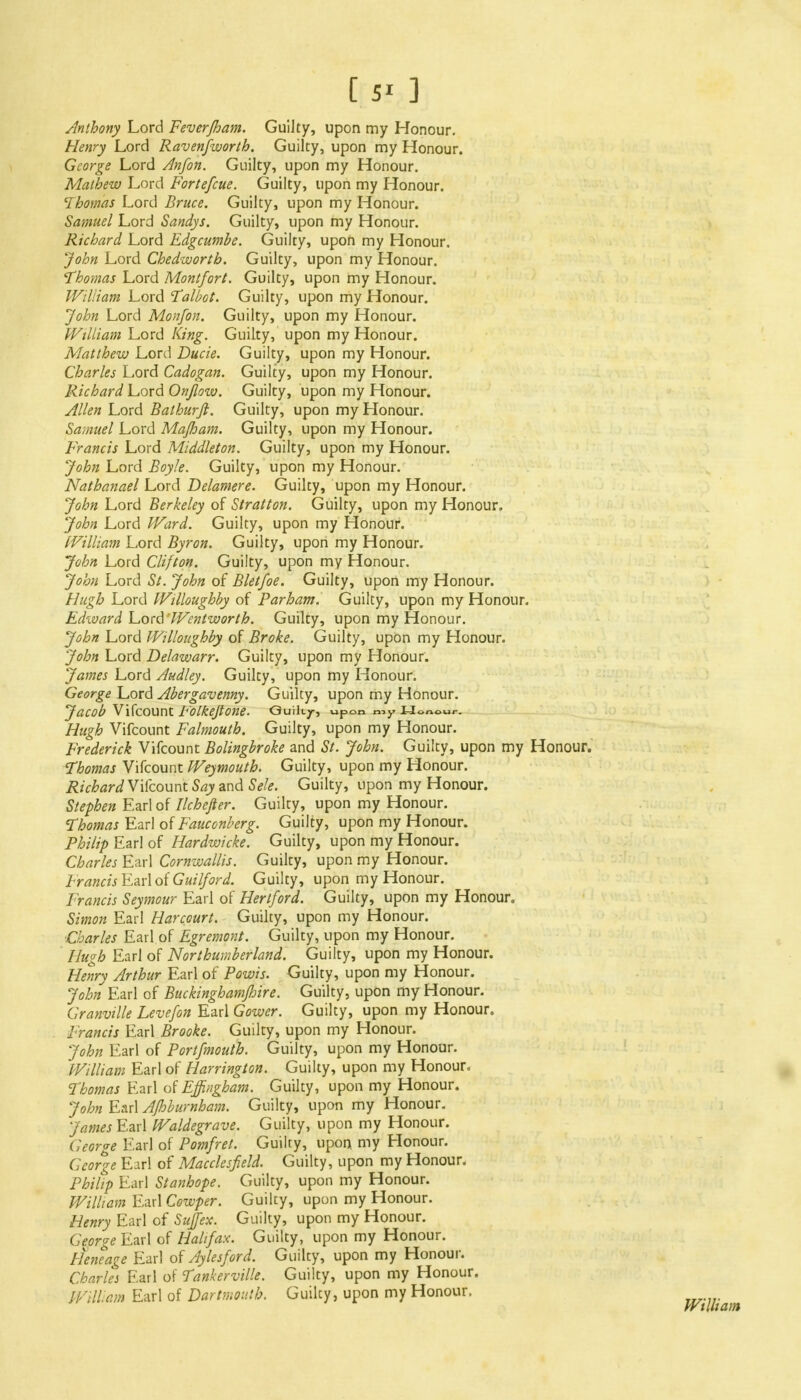 [ 51 ]
Anthony Lord Feverſham. Guilty, upon my Honour.
Henry Lord Ravenſworth. Guilty, upon my Honour.
George Lord Anſon. Guilty, upon my Honour.
Mathew Lord Forteſcue. Guilty, upon my Honour.
Thomas Lord Bruce. Guilty, upon my Honour.
Samuel Lord Sandys. Guilty, upon my Honour.
Richard Lord Edgcumbe. Guilty, upon my Honour.
John Lord Chedworth. Guilty, upon my Honour.
Thomas Lord Montfort. Guilty, upon my Honour.
William Lord Talbot. Guilty, upon my Honour.
John Lord Monſon. Guilty, upon my Honour.
William Lord King. Guilty, upon my Honour.
Matthew Lord Ducie. Guilty, upon my Honour.
Charles Lord Cadogan. Guilty, upon my Honour.
Richard Lord Onſlow. Guilty, upon my Honour.
Allen Lord Bathurſt. Guilty, upon my Honour.
Samuel Lord Maſham. Guilty, upon my Honour.
Francis Lord Middleton. Guilty, upon my Honour.
John Lord Boyle. Guilty, upon my Honour.
Nathanael Lord Delamere. Guilty, upon my Honour.
John Lord Berkeley of Stratton. Guilty, upon my Honour.
John Lord Ward. Guilty, upon my Honour.
William Lord Byron. Guilty, upon my Honour.
John Lord Clifton. Guilty, upon my Honour.
John Lord St. John of Bletſoe. Guilty, upon my Honour.
Hugh Lord Willoughby of Parham. Guilty, upon my Honour.
Edward Lord Wentworth. Guilty, upon my Honour.
John Lord Willoughby of Broke. Guilty, upon my Honour.
John Lord Delawarr. Guilty, upon my Honour.
James Lord Audley. Guilty, upon my Honour.
George Lord Abergavenny. Guilty, upon my Honour.
Jacob Viſcount Folkeſtone. Guilty, upon my Honour.
Hugh Viſcount Falmouth. Guilty, upon my Honour.
Frederick Viſcount Bolingbroke and St. John. Guilty, upon my Honour.
Thomas Viſcount Weymouth. Guilty, upon my Honour.
Richard Viſcount Say and Sele. Guilty, upon my Honour.
Stephen Earl of Ilcheſter. Guilty, upon my Honour.
Thomas Earl of Fauconberg. Guilty, upon my Honour.
Philip Earl of Hardwicke. Guilty, upon my Honour.
Charles Earl Cornwallis. Guilty, upon my Honour.
Francis Earl of Guilford. Guilty, upon my Honour.
Francis Seymour Earl of Hertford. Guilty, upon my Honour.
Simon Earl Harcourt. Guilty, upon my Honour.
Charles Earl of Egremont. Guilty, upon my Honour.
Hugh Earl of Northumberland. Guilty, upon my Honour.
Henry Arthur Earl of Powis. Guilty, upon my Honour.
John Earl of Buckinghamſhire. Guilty, upon my Honour.
Granville Leveſon Earl Gower. Guilty, upon my Honour.
Francis Earl Brooke. Guilty, upon my Honour.
John Earl of Portſmouth. Guilty, upon my Honour.
William Earl of Harrington. Guilty, upon my Honour.
Thomas Earl of Effingham. Guilty, upon my Honour.
John Earl Aſhburnham. Guilty, upon my Honour.
James Earl Waldegrave. Guilty, upon my Honour.
George Earl of Pomfret. Guilty, upon my Honour.
George Earl of Macclesfield. Guilty, upon my Honour.
Philip Earl Stanhope. Guilty, upon my Honour.
William Earl Cowper. Guilty, upon my Honour.
Henry Earl of Suſſex. Guilty, upon my Honour.
George Earl of Halifax. Guilty, upon my Honour.
Heneage Earl of Aylesford. Guilty, upon my Honour.
Charles Earl of Tankerville. Guilty, upon my Honour.
William Earl of Dartmouth. Guilty, upon my Honour.
William